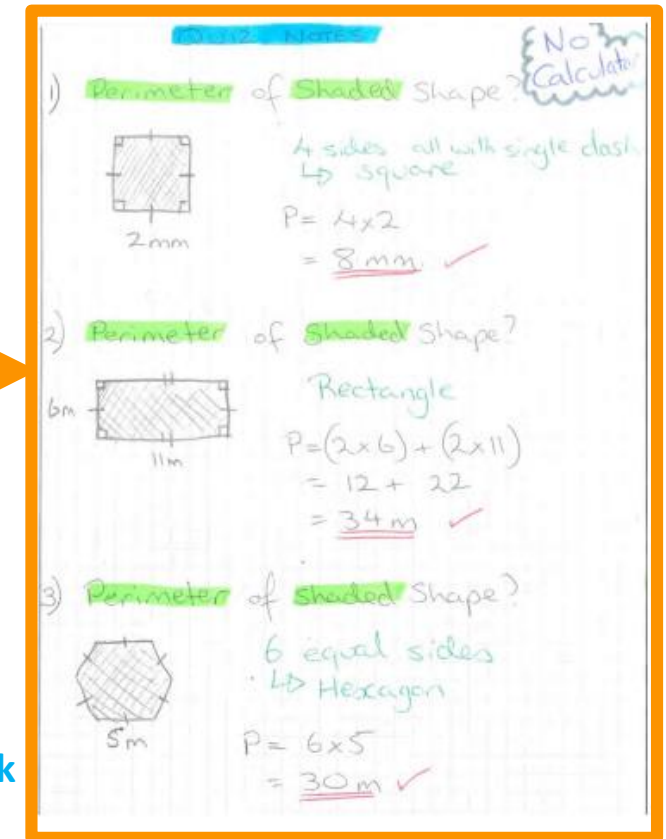 QUIZ NOTES
No
Calculator
1) Perimeter of Shaded Shape?
4 sides all with single dash
↳ square
2mm
P = 4x2
= 8 mm ✓
2) Perimeter of Shaded Shape?
Rectangle
6m
11m
P=(2x6) + (2x11)
= 12 + 22
= 34 m ✓
3) Perimeter of shaded Shape?
6 equal sides
↳ Hexagon
5m
P = 6x5
= 30 m ✓
k